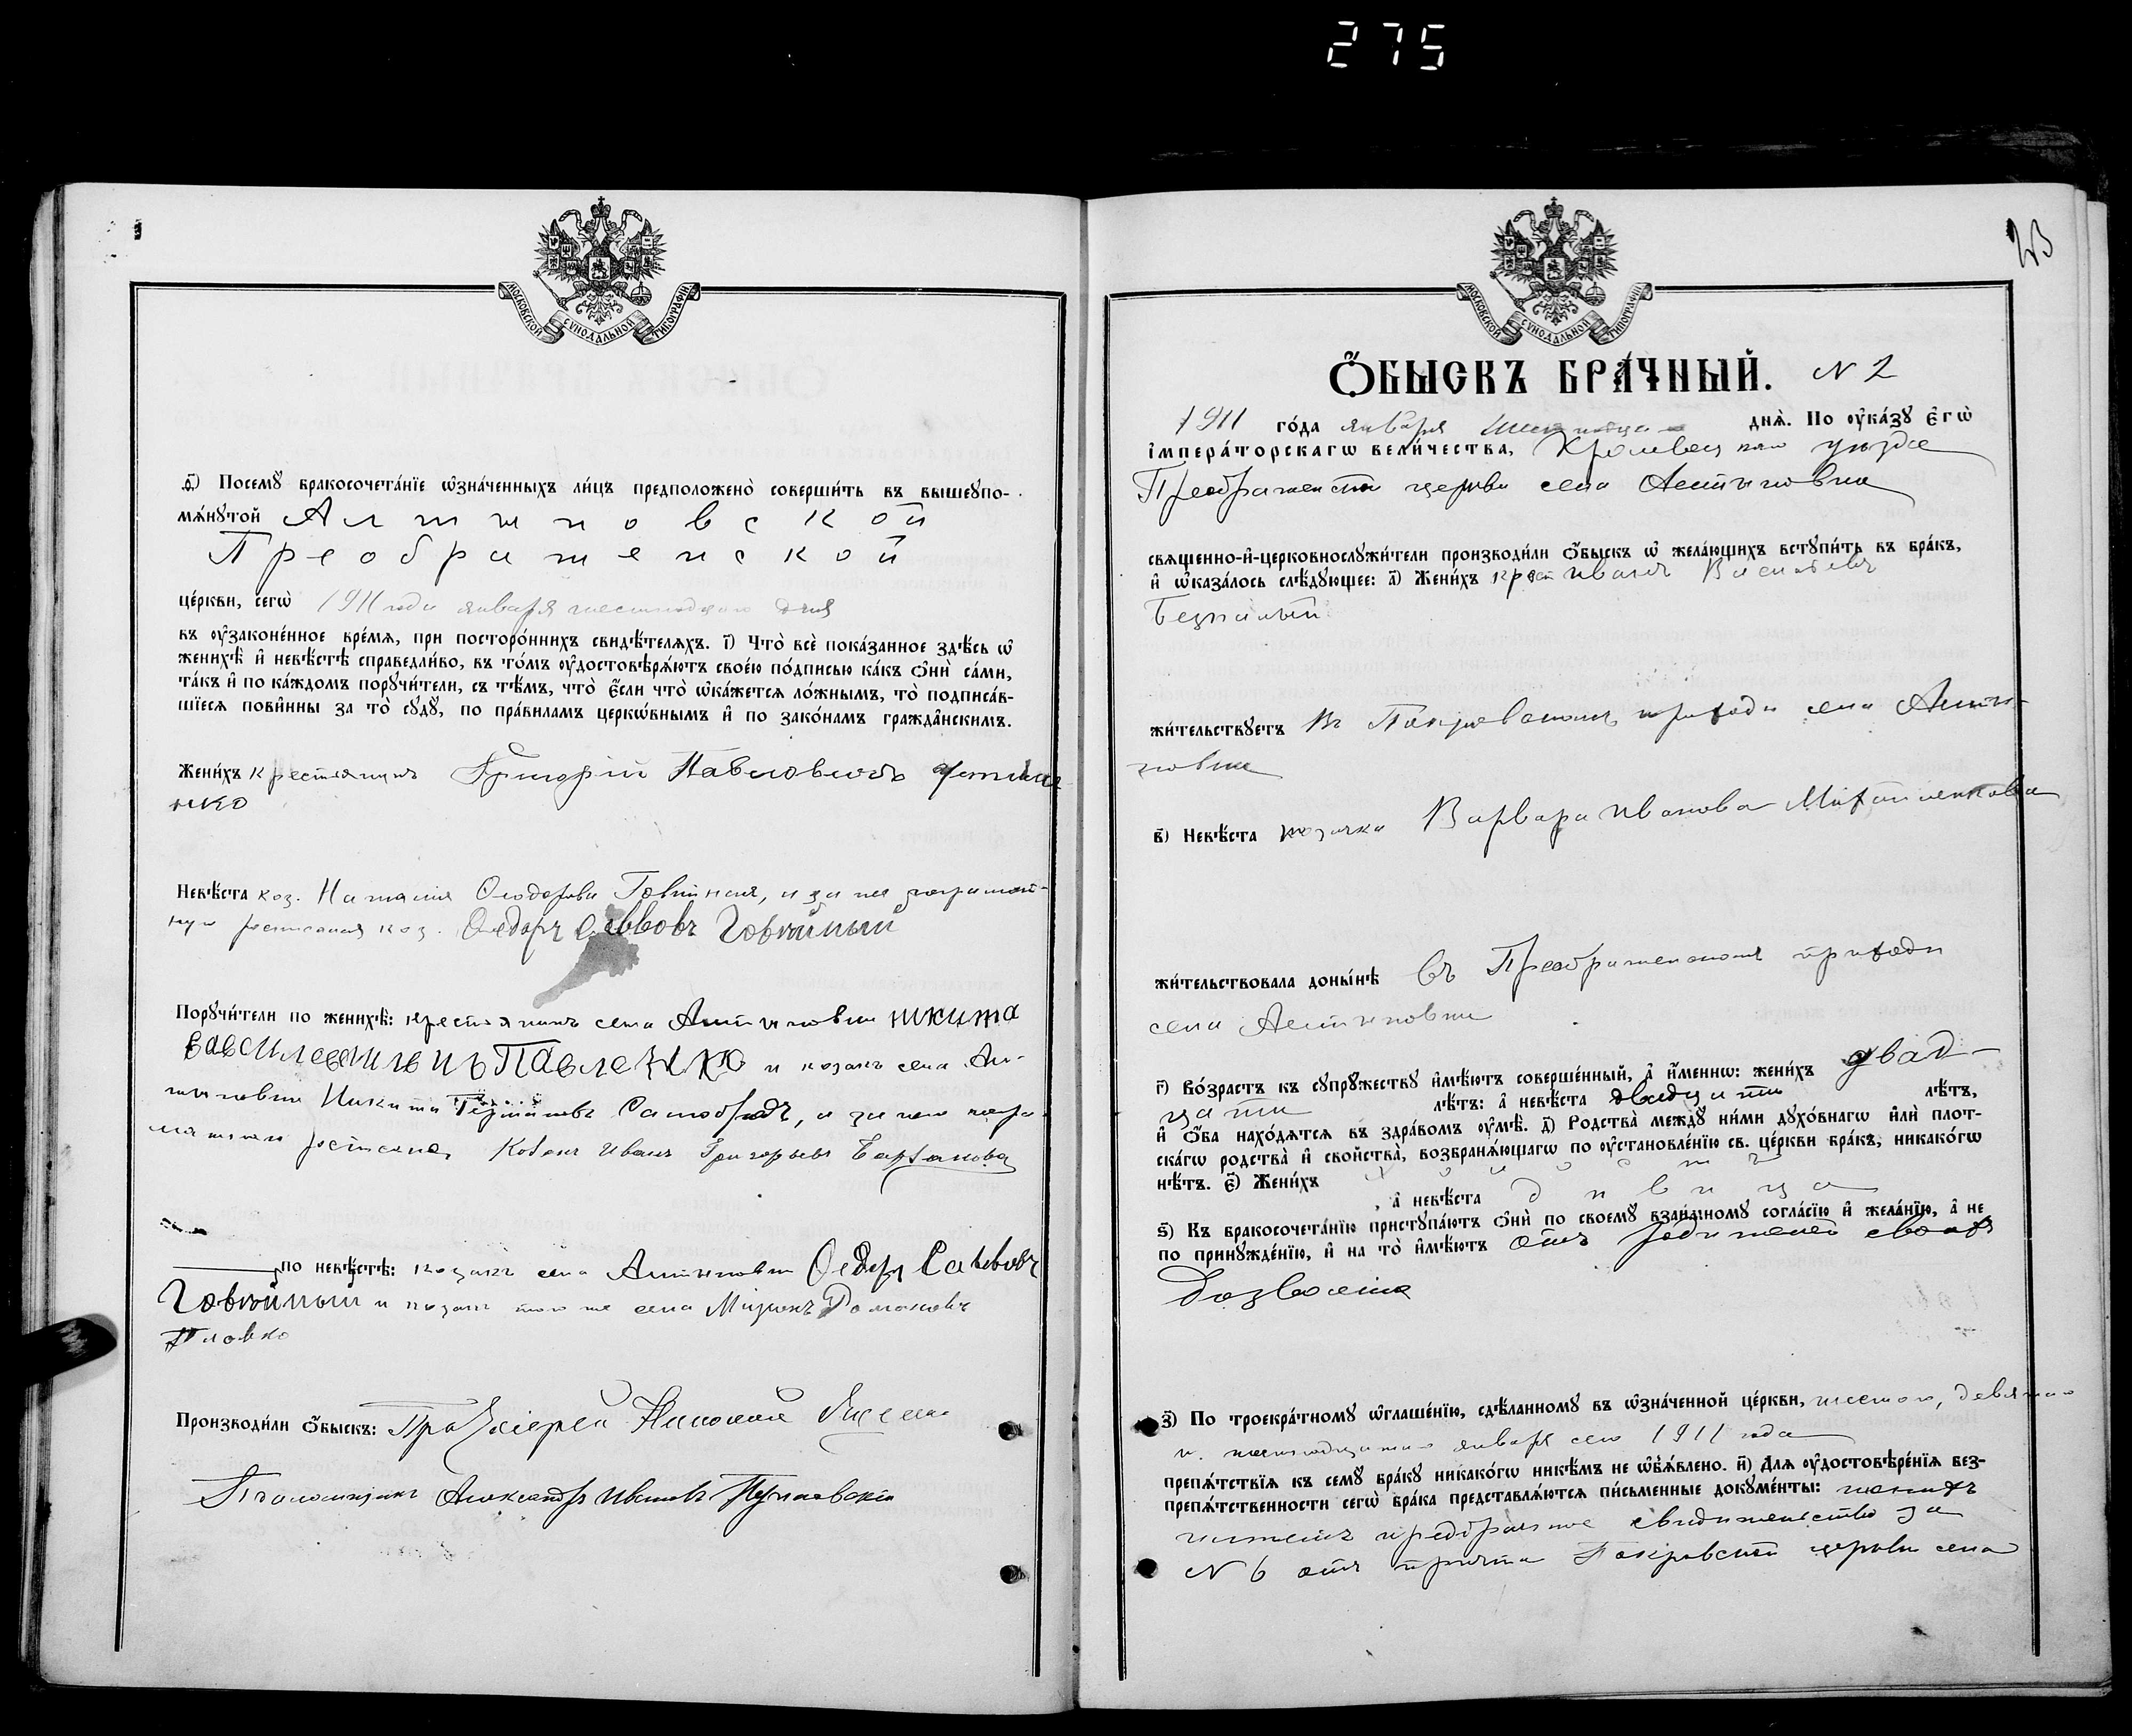 275
МОСКОВСКОЙ СѴНОДАЛЬНОЙ ТИПОГРАФІИ
ѳ҃) Посемꙋ бракосочета́нїе ѡ҆зна́ченныхъ ли́цъ предположено̀ соверши́ть въ вышеꙋпо-
мѧ́нꙋтой Алтиновской
Преображенской
це́ркви, сегѡ̀ 1911 года января шестнадцатого дня
въ ᲂу҆законе́нное вре́мѧ, при посторо́ннихъ свидѣ́телѧхъ. і҃) Что̀ всѐ пока́занное здѣ́сь ѡ҆
женихѣ̀ и҆ невѣ́стѣ справедли́во, въ то́мъ ᲂу҆достовѣрѧ́ютъ свое́ю по́дписью ка́къ ѻ҆нѝ са́ми,
та́къ и҆ по ка́ждомъ порꙋчи́тели, съ тѣ́мъ, что̀ є҆́сли что̀ ѡ҆ка́жетсѧ ло́жнымъ, то̀ подписа́в-
шїесѧ пови́нны за то̀ сꙋдꙋ̀, по пра́виламъ церкѡ́внымъ и҆ по зако́намъ гражда̂нскимъ.
Жени́хъ крестянинъ Григорій Павловичъ
нко
Невѣ́ста коз. Наталія Ѳеодорова Говтиная, и за нея неграмот-
ную росписался коз. Ѳедоръ Саввовъ Говтиный
Порꙋчи́тели по женихѣ̀: крестьянинъ села Алтиновки никита
Павленко и козакъ села Ал-
тиновки Никита Самобродъ, а за него негра-
мотнаго козакъ Иванъ Григорьевъ
по невѣ́стѣ: козакъ села Алтиновки Ѳедоръ Саввовъ
Говтиный и козакъ того же села Миронъ Романовъ
Производи́ли ѻ҆́быскъ: Протоіерей Николай
Псаломщикъ Александръ Ивановъ
23
МОСКОВСКОЙ СѴНОДАЛЬНОЙ ТИПОГРАФІИ
Ѻ҆́БЫСКЪ БРА́ЧНЫЙ. N 2
1911 го́да января днѧ̀. По ᲂу҆ка́зꙋ є҆гѡ̀
і҆мпера́торскагѡ вели́чества, Кролевецкаго уѣзда
Преображенской церкви села Алтиновки
свѧщенно-и҆-церковнослꙋжи́тели производи́ли ѻ҆́быскъ ѡ҆ жела́ющихъ встꙋпи́ть въ бра́къ,
и҆ ѡ҆каза́лось слѣ́дꙋющее: а҃) Жени́хъ крест Иванъ Васильевъ
Безпалый
жи́тельствꙋетъ въ Покровскомъ приходѣ села Алти-
новки
в҃) Невѣ́ста козачка Варвара Иванова Михайленкова
жи́тельствовала доны́нѣ въ Преображенскомъ приходѣ
села Алтиновки
г҃) Во́зрастъ къ сꙋпрꙋ́жествꙋ и҆мѣ́ютъ соверше́нный, а҆ и҆́меннѡ: жени́хъ двад-
цати лѣ́тъ: а҆ невѣ́ста двадцати лѣ́тъ,
и҆ ѻ҆́ба нахо́дѧтсѧ въ здра́вомъ ᲂу҆мѣ̀. д҃) Родства̀ междꙋ̀ ни́ми дꙋхо́внагѡ и҆лѝ плот-
ска́гѡ родства̀ и҆ сво́йства̀, возбранѧ́ющагѡ по ᲂу҆становле́нїю св. це́ркви бра́къ, никако́гѡ
нѣ́тъ. є҃) Жени́хъ холостъ, а҆ невѣ́ста дѣвица
ѕ҃) Къ бракосочета́нїю пристꙋпа́ютъ ѻ҆нѝ по своемꙋ̀ взаи́мномꙋ согла́сїю и҆ жела́нїю, а҆ не
по принꙋжде́нїю, и҆ на то̀ и҆мѣ́ютъ отъ родителей своихъ
дозволенія
з҃) По троекра́тномꙋ ѡ҆глаше́нїю, сдѣ́ланномꙋ въ ѡ҆зна́ченной це́ркви, шестого, девятаго
и пятнадцатаго января сего 1911 года
препѧ́тствїѧ къ семꙋ̀ бра́кꙋ никако́гѡ никѣ́мъ не ѡ҆б̾ѧ́влено. и҃) Длѧ ᲂу҆достовѣре́нїѧ без-
препѧ́тственности сегѡ̀ бра́ка представлѧ́ютсѧ пи́сьменные докꙋме́нты: женихъ
предбрачное свидетельство за
N 6 отъ причта Покровской церкви села